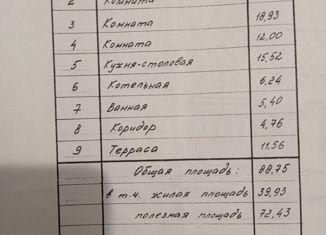 2 Комната
3 Комната 18,93
4 Комната 12,00
5 Кухня-столовая 15,52
6 Котельная 6,24
7 Ванная 5,40
8 Коридор 4,76
9 Терраса 11,56
Общая площадь: 88,75
в т.ч. жилая площадь 39,93
полезная площадь 72,43